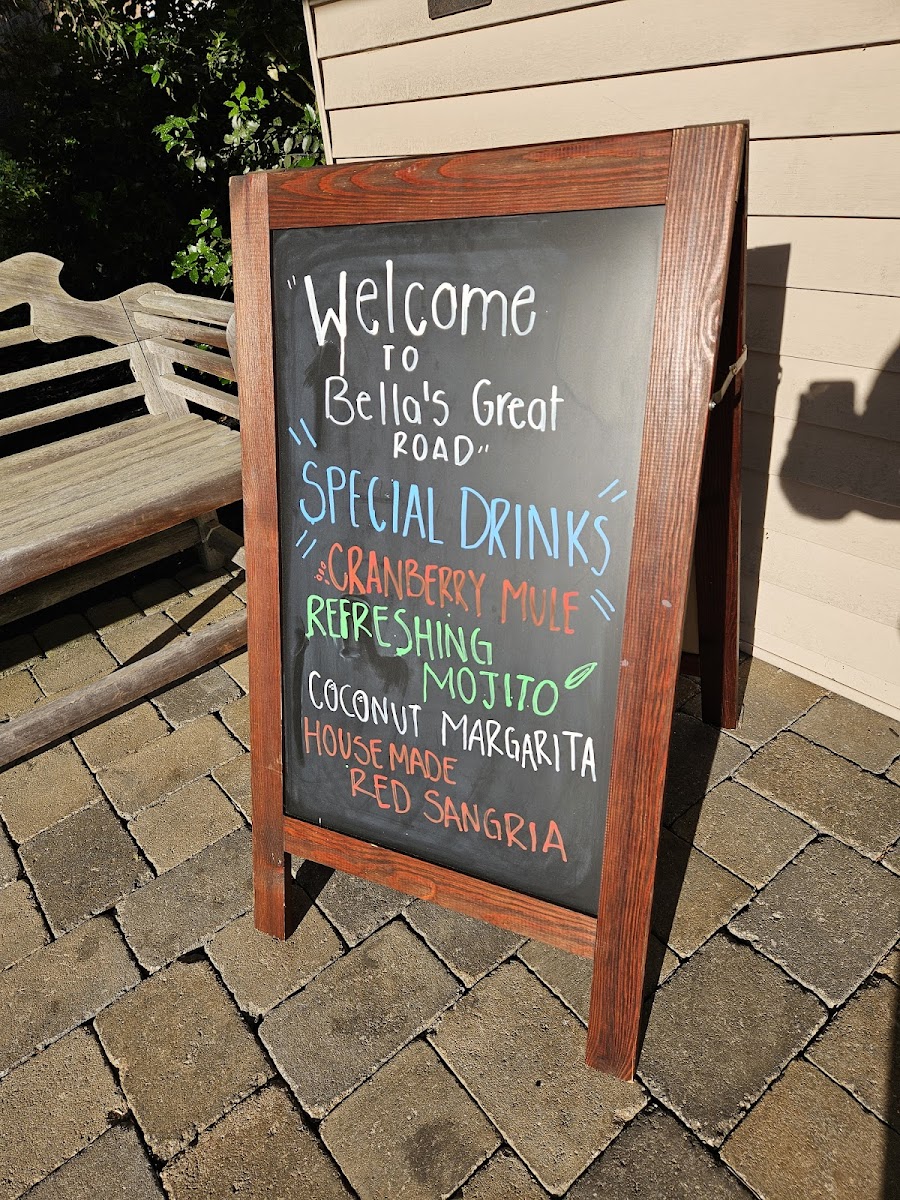 "Welcome
TO
Bella's Great
ROAD"
SPECIAL DRINKS
CRANBERRY MULE
REFRESHING
MOJITO
COCONUT MARGARITA
HOUSE MADE
RED SANGRIA